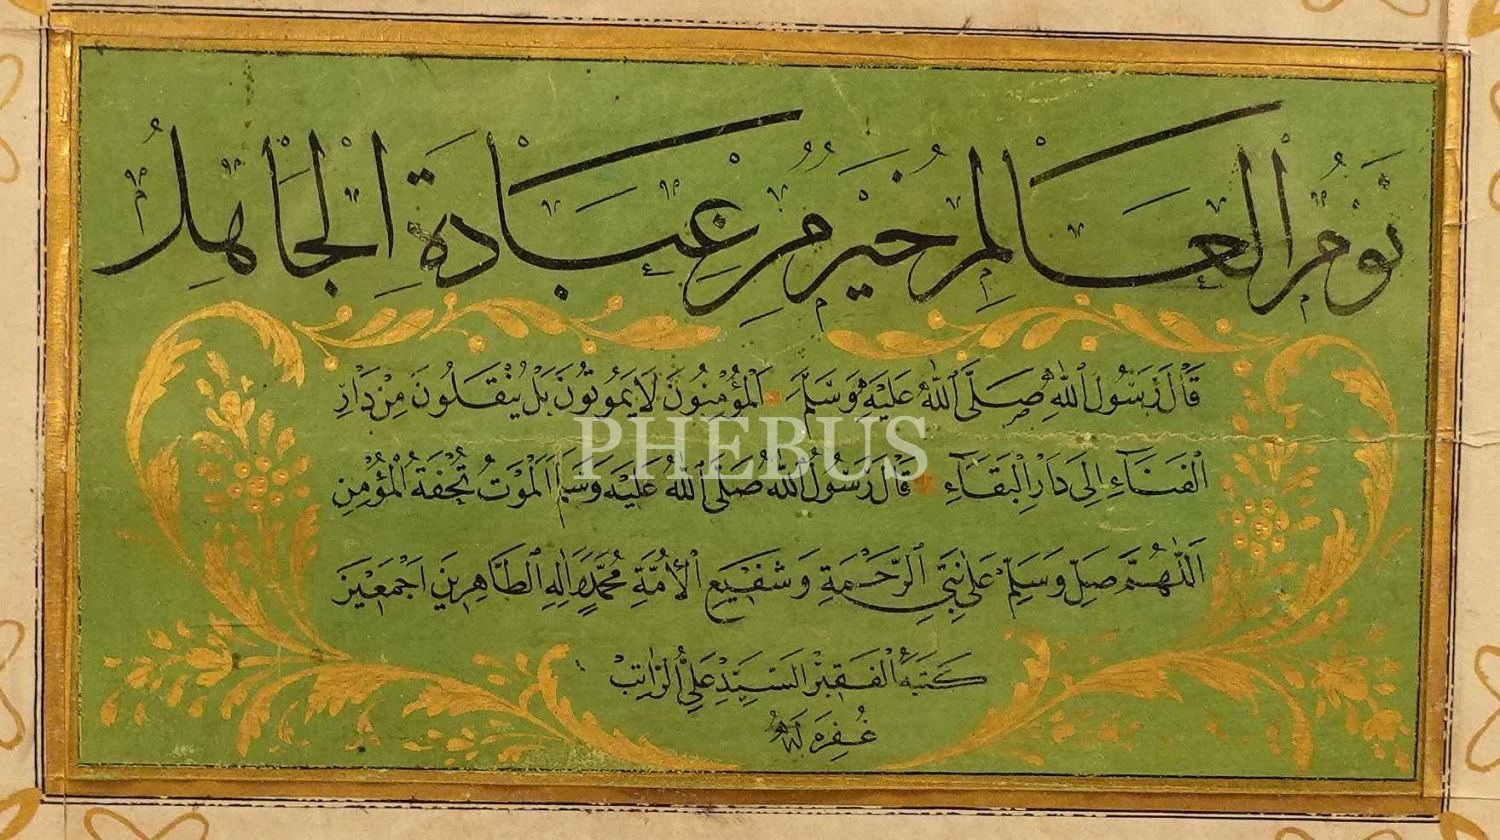 نَوْمُ الْعَالِمِ خَيْرٌ مِنْ عِبَادَةِ الْجَاهِلِ
قَالَ رَسُولُ اللهِ صَلَّى اللهُ عَلَيْهِ وَسَلَّمَ الْمُؤْمِنُونَ لَا يَمُوتُونَ بَلْ يُنْقَلُونَ مِنْ دَارِ
الْفَنَاءِ إِلَى دَارِ الْبَقَاءِ قَالَ رَسُولُ اللهِ صَلَّى اللهُ عَلَيْهِ وَسَلَّمَ الْمَوْتُ تُحْفَةُ الْمُؤْمِنِ
اَللّٰهُمَّ صَلِّ وَسَلِّمْ عَلَى نَبِيِّ الرَّحْمَةِ وَشَفِيعِ الْأُمَّةِ مُحَمَّدٍ وَآلِهِ الطَّاهِرِينَ اَجْمَعِينَ
كَتَبَهُ الْفَقِيرُ السَّيِّدْ عَلِيُّ الرَّاتِبْ
غُفِرَ لَهُ
PHEBUS